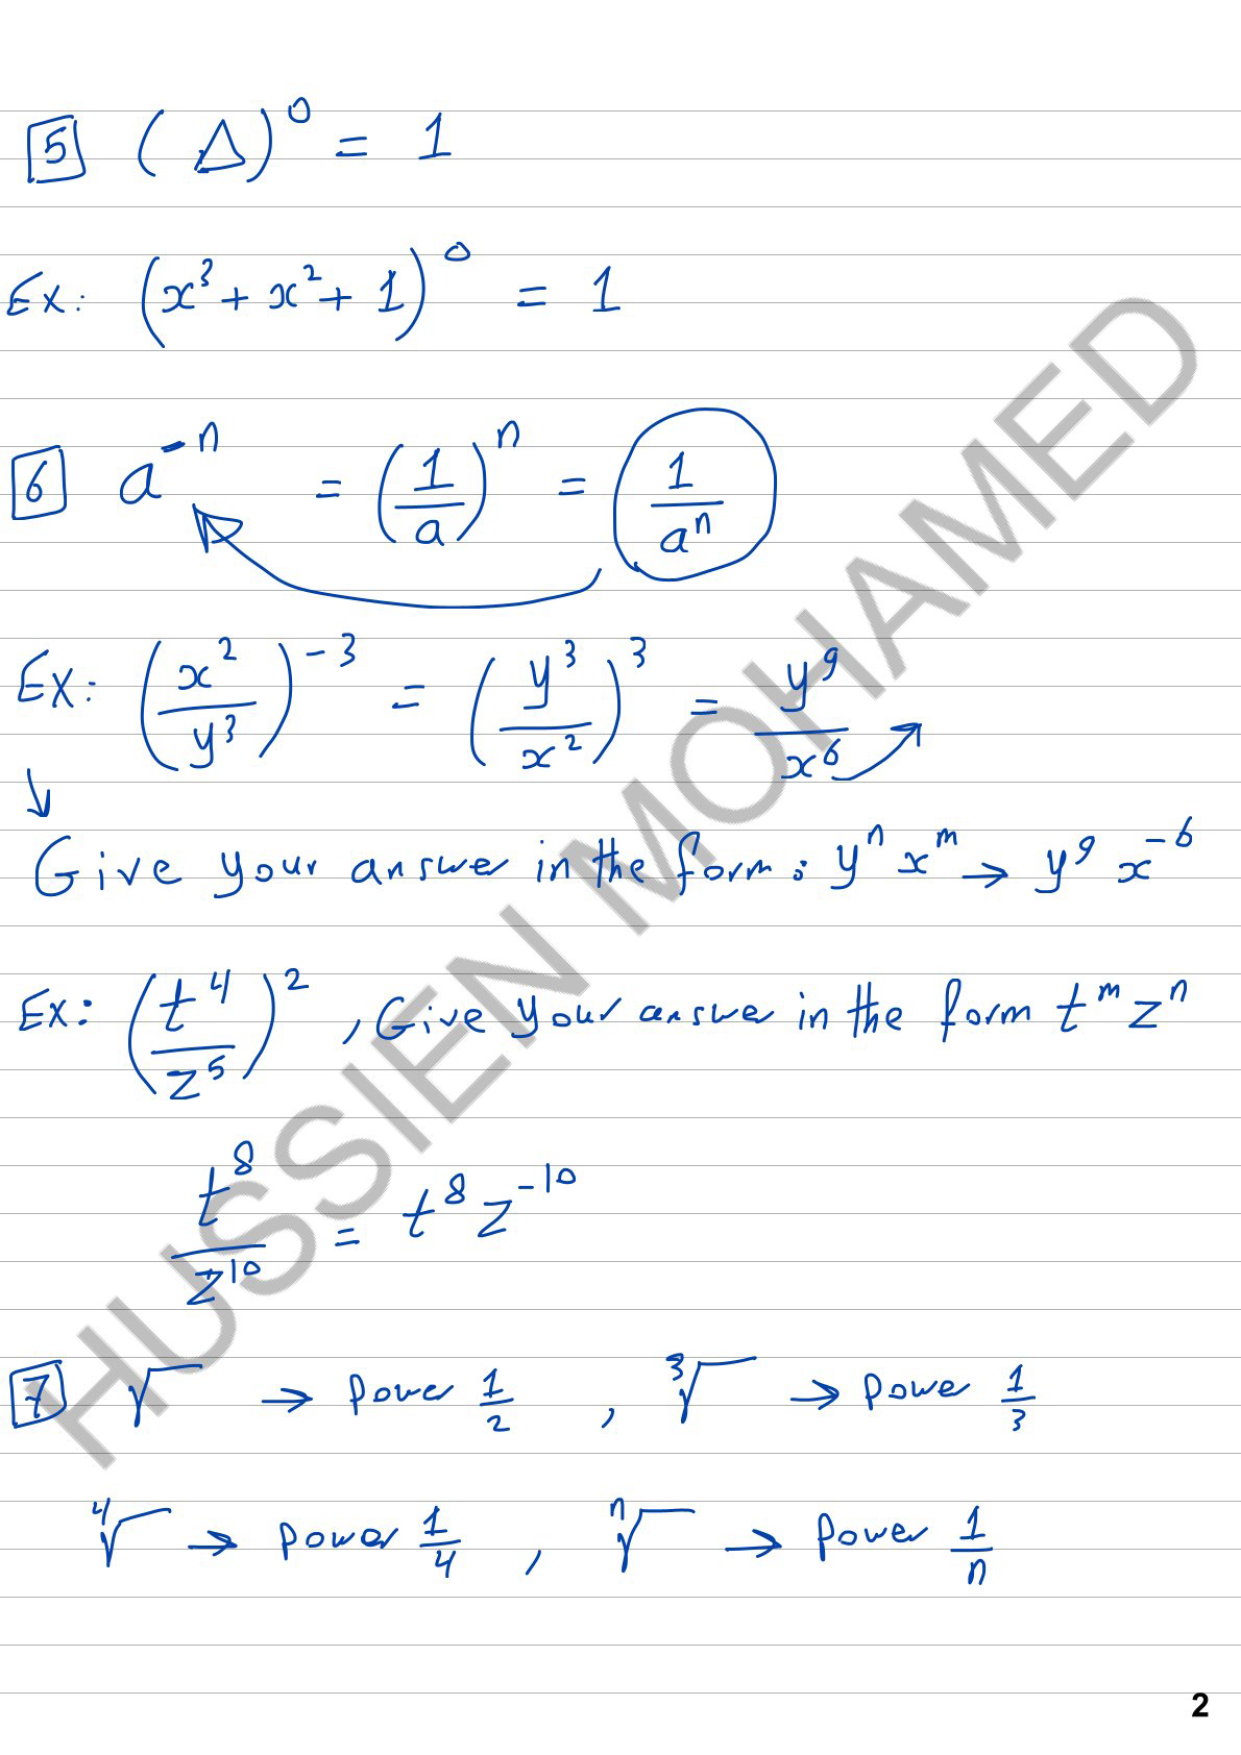 5 (Δ)⁰ = 1
Ex: (x³ + x² + 1)⁰ = 1
6 a⁻ⁿ = (1/a)ⁿ = 1/aⁿ
Ex: (x²/y³)⁻³ = (y³/x²)³ = y⁹/x⁶
↓
Give your answer in the form: yⁿ xᵐ → y⁹ x⁻⁶
Ex: (t⁴/z⁵)², Give your answer in the form tᵐ zⁿ
t⁸/z¹⁰ = t⁸ z⁻¹⁰
7 √ → Power 1/2 , ³√ → Power 1/3
⁴√ → Power 1/4 , ⁿ√ → Power 1/n
HUSSIEN MOHAMED
2